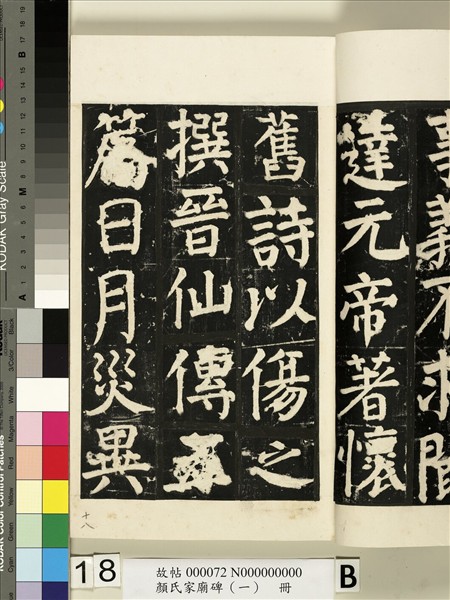 事義不求聞
達元帝著懷
舊詩以傷之
撰晉仙傳五
篇日月災異
十八
18
故帖 000072 N000000000
顏氏家廟碑（一） 冊
B
KODAK Gray Scale
A 1 2 3 4 5 6 M 8 9 10 11 12 13 14 15 B 17 18 19
KODAK Color Control Patches
Black
3/Color
White
Magenta
Red
Yellow
Green
Cyan